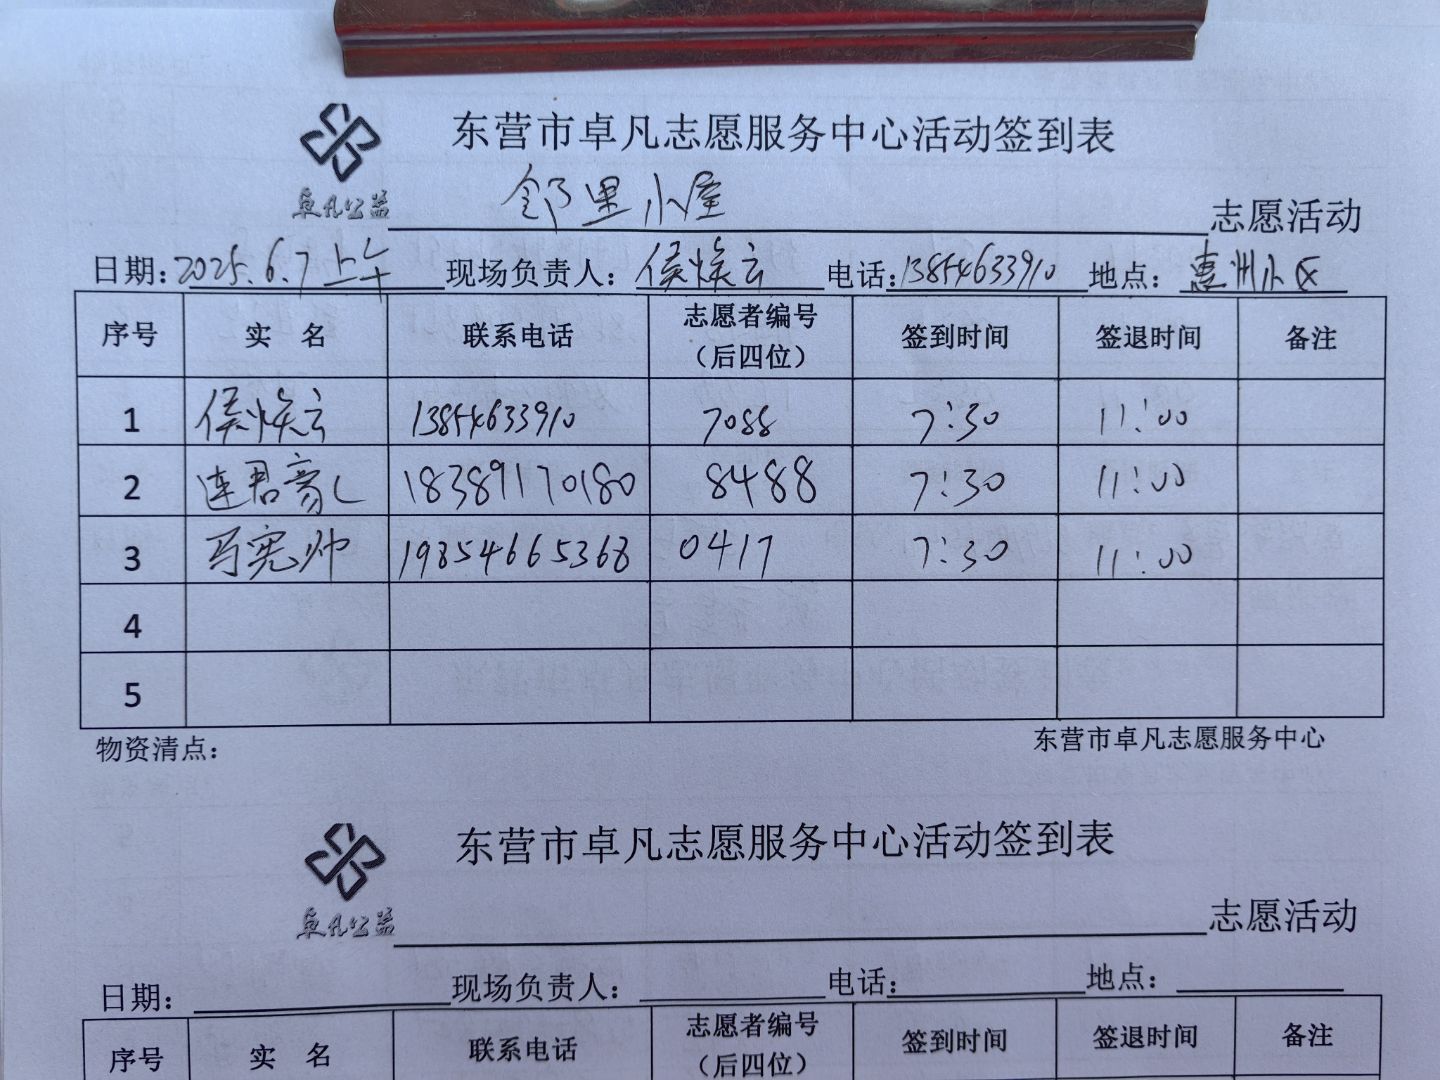 东营市卓凡志愿服务中心活动签到表
卓凡公益 邻里小屋 志愿活动
日期：2025.6.7上午 现场负责人：侯焕云 电话：13854633910 地点：惠州小区
序号 实 名 联系电话 志愿者编号（后四位） 签到时间 签退时间 备注
1 侯焕云 13854633910 7088 7:30 11:00
2 连君 18389170180 8488 7:30 11:00
3 马宪帅 19854665368 0417 7:30 11:00
4
5
物资清点： 东营市卓凡志愿服务中心
东营市卓凡志愿服务中心活动签到表
卓凡公益 志愿活动
日期： 现场负责人： 电话： 地点：
序号 实 名 联系电话 志愿者编号（后四位） 签到时间 签退时间 备注